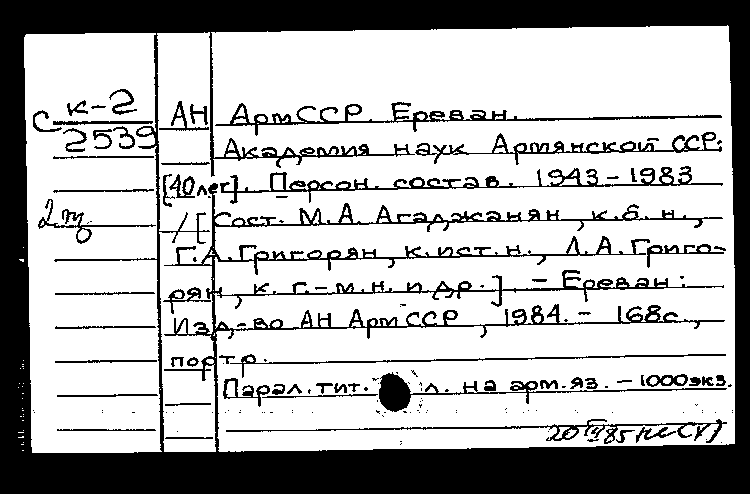 С К-2
2539
АН АрмССР. Ереван.
Академия наук Армянской ССР:
[40 лет]. Персон. состав. 1943-1983
2
/[Сост. М.А. Агаджанян, к.б.н.,
Г.А. Григорян, к.ист.н., Л.А. Григо-
рян, к. г.-м.н. и др.]. - Ереван:
Изд-во АН АрмССР, 1984. - 168с.,
портр.
Парал. тит. л. на арм.яз. - 1000экз.
20